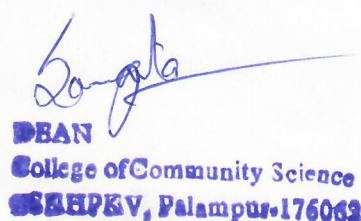 Sangeeta
DEAN
College of Community Science
CSKHPKV, Palampur-176062